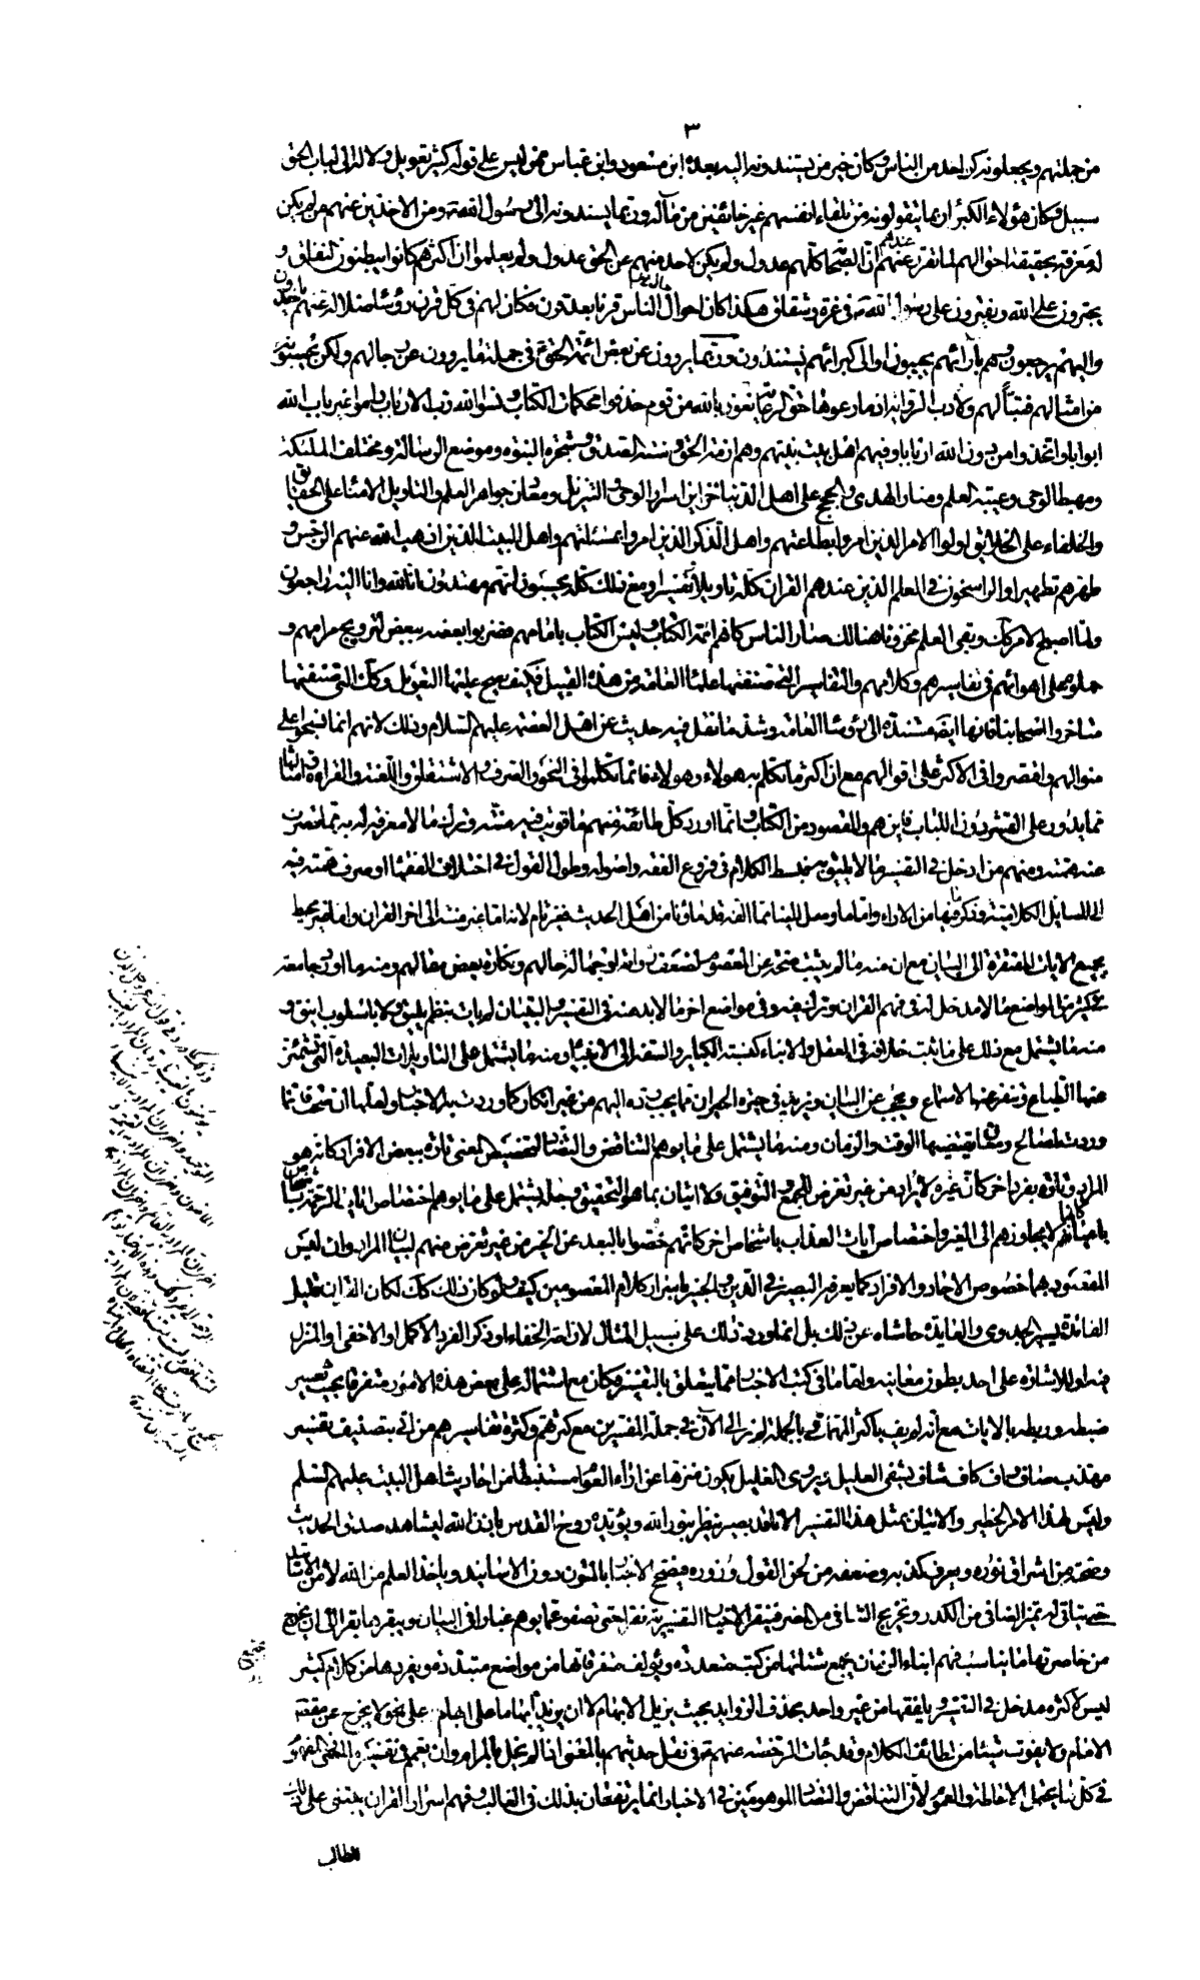 ٣
من جملتهم ويجعلونه كأحد من الناس وكان خير من يستندون إليه بعده ابن مسعود وابن عباس ممن ليس على قوله كثير تعويل ولا له إلى لباب الحق
سبيل وكان هؤلاء الكبراء ربما يتقولونه من تلقاء أنفسهم غير خائفين من مآله وربما يسندونه إلى رسول الله ص ومن الآخذين عنهم من لم يكن
له معرفة بحقيقة أحوالهم لما تقرر عندهم أن الصحابة كلهم عدول ولم يكن لأحد منهم عن الحق عدول ولم يعلموا أن أكثرهم كانوا يبطنون النفاق و
يجترون على الله ويفترون على رسول الله ص في عزة وشقاق هكذا كان حال الناس قرنا بعد قرن فكان لهم في كل قرن رؤساء ضلالة عنهم يأخذون
وإليهم يرجعون وهم بآرائهم يجيبون أو إلى كبرائهم يستندون وربما يروون عن بعض أئمة الحق ع في جملة ما يروون عن رجالهم ولكن يحسبونه
من أمثالهم فتبا لهم ولأدب الرواية إذ ما رعوها حق الرعاية نعوذ بالله من قوم حذفوا محكمات الكتاب ونسوا الله رب الأرباب راموا غير باب الله
أبوابا واتخذوا من دون الله أربابا وفيهم أهل بيت نبيهم وهم أزمة الحق وألسنة الصدق وشجرة النبوة وموضع الرسالة ومختلف الملئكة
ومهبط الوحي وعيبة العلم ومنار الهدى والحجج على أهل الدنيا خزاين أسرار الوحي والتنزيل ومعادن جواهر العلم والتاويل الأمناء على الحقايق
والخلفاء على الخلايق أولوا الأمر الذين أمروا بطاعتهم وأهل الذكر الذين أمروا بمسئلتهم وأهل البيت الذين أذهب الله عنهم الرجس و
طهرهم تطهيرا والراسخون في العلم الذين عندهم القران كله تاويلا وتفسيرا ومع ذلك كله يحسبون أنهم مهتدون إنا لله وإنا إليه راجعون
ولما أصبح الأمر كك وبقي العلم مخزونا هنالك صار الناس كأنهم أئمة الكتاب وليس الكتاب بامامهم فضربوا بعضه ببعض لترويج مرامهم و
حملوه على أهوائهم في تفاسيرهم وكلامهم والتفاسير التي صنفها علماء العامة من هذا القبيل فكيف يصح عليها التعويل وكك التي صنفها
متأخروا أصحابنا فانها أيضا مستندة إلى رؤساء العامة وشذ ما نقل فيه حديث عن أهل العصمة عليهم السلام وذلك لأنهم انما نسجوا على
منوالهم واقتصروا في الأكثر على أقوالهم مع أن أكثر ما تكلم به هؤلاء وهؤلاء فانما تكلموا في النحو والصرف والاشتقاق واللغة والقراءة وأمثالها
مما يدور على القشر دون اللباب فاين هم والمقصود من الكتاب وانما أورد كل طائفة منهم ما قويت فيه منته وترك ما لا معرفة له به مما قصرت
عنه همته ومنهم من أدخل في التفسير ما لا يليق به فبسط الكلام في فروع الفقه وأصوله وطول القول في اختلاف الفقهاء أو صرف همته فيه
إلى المسايل الكلامية وذكر ما فيها من الآراء وأما ما وصل إلينا مما ألفه قدماؤنا من أهل الحديث فغير تام لأنه اما غير منته إلى آخر القران واما غير محيط
بجميع الآيات المفتقرة إلى البيان مع أن منه ما لم يثبت صحته عن المعصوم لضعف رواته أو جهالة حالهم ونكارة بعض مقالهم ومنه ما أورد جامعه
في كثير من المواضع ما لا مدخل له في فهم القران وترك فيه وفي مواضع أخر ما لا بد منه في التفسير والتبيان لم يات بنظم يليق ولا بأسلوب أنيق و
منه ما يشتمل مع ذلك على ما ثبت خلافه في العقل والأنباء كنسبة الكباير والسفه إلى الأنبياء ومنه ما يشتمل على التاويلات البعيدة التي تشمئز
عنها الطباع وتنفر عنها الأسماع ويحجب عن البيان ويزيد في حيرة الحيران مما يجب رده إليهم من غير انكار كما وردت به الأخبار ولعلها ان صحت فإنما
وردت لمصالح ومعان يقتضيها الوقت والزمان ومنه ما يشتمل على ما يوهم التناقض والتضاد لتخصيص المعنى تارة ببعض الأفراد كأنه هو
المراد وتارة بفرد آخر كان غيره لا يراد من غير تعرض للجمع والتوفيق ولا اتيان بما هو التحقيق وجله يشتمل على ما يوهم اختصاص آيات الرحمة بأشخاص
بأعيانهم كأنها لا يجاوزهم إلى الغير واختصاص آيات العذاب بأشخاص أخر كأنهم خصوا بالبعد عن الخير من غير تعرض منهم لبيان المراد وان ليس
المقصود بهما خصوص الآحاد والأفراد كما يعرفه البصير في الدين والخبير بأسرار كلام المعصومين كيف ولو كان ذلك كك لكان القران قليل
الفائدة يسير الجدوى والعايدة حاشاه عن ذلك بل انما ورد ذلك على سبيل المثال لإزاحة الخفاء أو ذكر الفرد الأكمل أو الأخفى أو المنزل
فيه أو للإشارة على أحد بطون معانيه واما ما في كتب الأخبار مما يتعلق بالتفسير فكان مع اشتماله على بعض هذه الأمور متفرقا بحيث تعسر
ضبطه وربطه بالآيات مع أنه لم يف بأكثر المهمات وبالجملة لم نر إلى الآن في جملة المفسرين مع كثرتهم وكثرة تفاسيرهم من أتى بتصنيف تفسير
مهذب صاف واف كاف شاف يشفي العليل ويروي الغليل يكون منزها عن آراء العوام مستنبطا من أحاديث أهل البيت عليهم السلم
وليس لهذا الأمر الخطير والاتيان بمثل هذا التفسير الا ناقد بصير ينظر بنور الله ويؤيده روح القدس باذن الله ليشاهد صدق الحديث
وصحته من اشراق نوره ويعرف كذبه وضعفه من لحن القول وزوره فيصحح الأخبار بالمتون دون الأسانيد ويأخذ العلم من الله لا من الأساتيد
حتى يتأتى له تميز الصافي من الكدر وتخريج الشافي من المضر فينقر الأخبار التفسيرية نقرا حتى تصفو عما يوهم غبارا في البيان ويبقر ما يقر إلى أن يخرج
من خاصرتها ما يناسب فهم أبناء الزمان يجمع شتاتها من كتب متعددة ويؤلف متفرقاتها من مواضع متبددة ويفردها من كلام كثير
ليس لأكثره مدخل في التفسير ويلفقها من غير واحد بحذف الزوايد بحيث يزيل الابهام الا أن يزيد ابهاما على ابهام على نحو لا يخرج عن مقصد
الامام ولا يفوت شيئا من لطائف الكلام وقد جاءت الرخصة عنهم ع في نقل حديثهم بالمعنى إذا لم يخل بالمرام وان يعمم في تفسيره المعنى والمفهوم
في كل ما يحتمل الإحاطة والعموم لأن التناقض والتضاد الموهومين في الأخبار انما يرتفعان بذلك في الغالب وفهم أسرار القران يبتنى على ذلك
للطالب